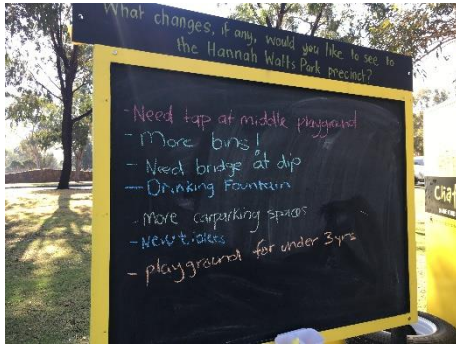 What changes, if any, would you like to see to
the Hannah Watts Park precinct?
- Need tap at middle playground
- More bins!
- Need bridge at dip
- Drinking Fountain
. More carparking spaces
- New toilets
- playground for under 3yrs